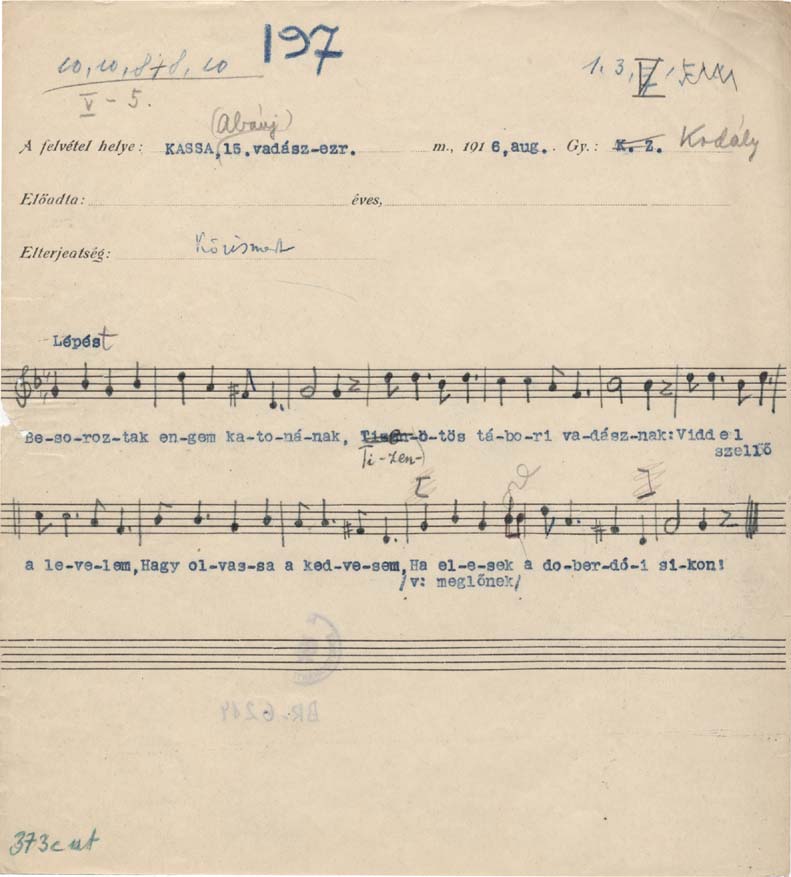 197
10, 10, 8+8, 10
V - 5.
1. 3,
(Abauj)
A felvétel helye: KASSA, 15. vadász-ezr. m., 1916, aug. Gy.: K. Z. Kodály
Előadta: éves,
Elterjeatség: Közismert
Lépést
Be-so-roz-tak en-gem ka-to-ná-nak, Tizen-ö-tös tá-bo-ri va-dász-nak: Vidd el
Ti-zen-) szellő
a le-ve-lem, Hagy ol-vas-sa a ked-ve-sem, Ha el-e-sek a do-ber-dó-i si-kon!
/v: meglőnek/
BR. 6214
373